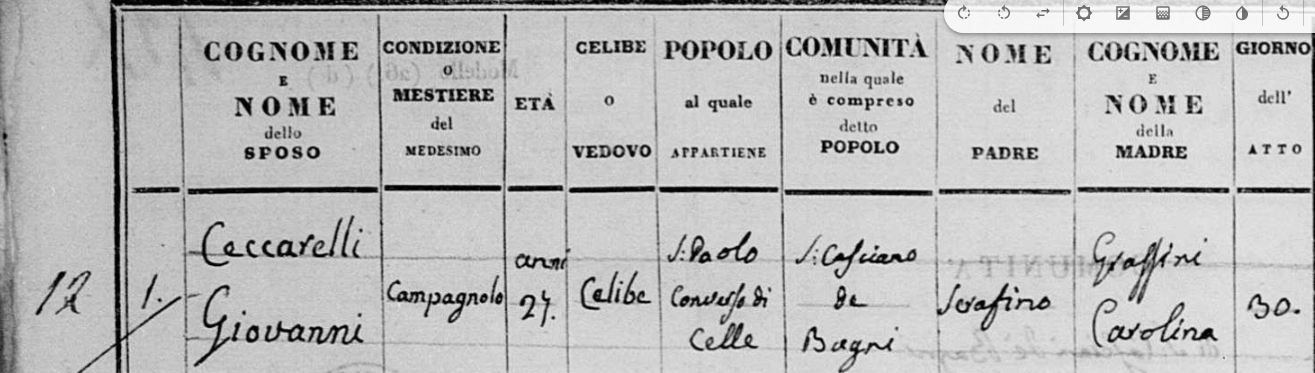 COGNOME
E
NOME
dello
SPOSO
CONDIZIONE
o
MESTIERE
del
MEDESIMO
ETÀ
CELIBE
o
VEDOVO
POPOLO
al quale
APPARTIENE
COMUNITÀ
nella quale
è compreso
detto
POPOLO
NOME
del
PADRE
COGNOME
E
NOME
della
MADRE
GIORNO
dell'
ATTO
12
1.
Ceccarelli
Giovanni
Campagnolo
anni
27.
Celibe
S. Paolo
Converso di
Celle
S. Casciano
de
Bagni
Serafino
Graffini
Carolina
30.